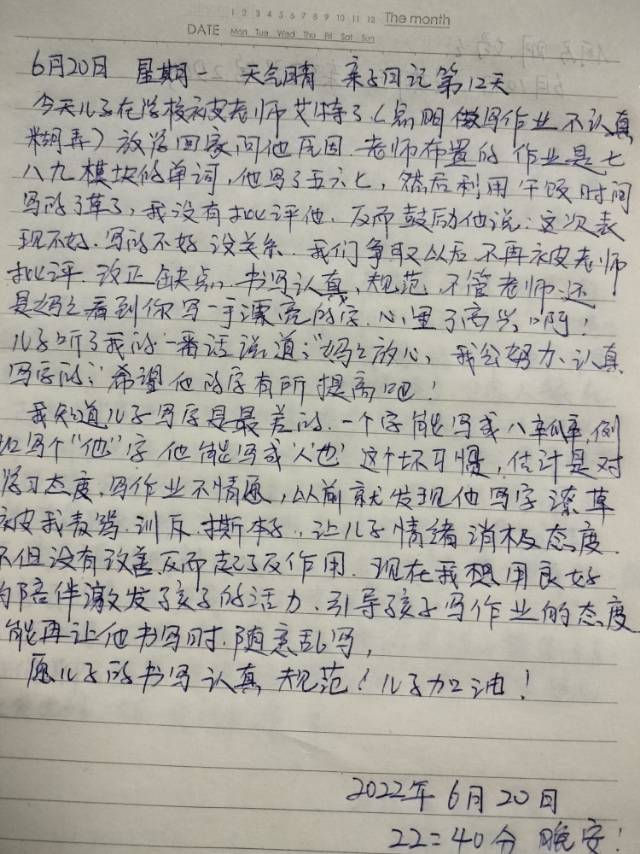 1 2 3 4 5 6 7 8 9 10 11 12 The month
DATE Mon Tue Wed Thu Fri Sat Sun
6月20日 星期一 天气晴 亲子日记第12天
今天儿子在学校被老师艾特了（点明做写作业不认真
糊弄）放学回家问他原因.老师布置的作业是七
八九模块的单词,他写了五六七,然后利用午饭时间
写的了草了,我没有批评他.反而鼓励他说:这次表
现不好.写的不好没关系.我们争取以后不再被老师
批评.改正缺点.书写认真,规范.不管老师还
是妈妈看到你写一手漂亮的字.心里多高兴啊!
儿子听了我的一番话说道:"妈妈放心,我会努力、认真
写字的;希望他的字有所提高吧!
我知道儿子写字是最差的.一个字能写成八瓣,例
如写个"他"字他能写成'人''也'这个坏习惯,估计是对
学习态度.写作业不情愿,以前就发现他写字潦草
被我责骂.训斥.撕本子.让儿子情绪消极态度.
不但没有改善反而起了反作用.现在我想用良好
的陪伴激发了孩子的活力.引导孩子写作业的态度
能再让他书写时.随意乱写,
愿儿子的书写认真规范!儿子加油!
2022年6月20日
22:40分 晚安!